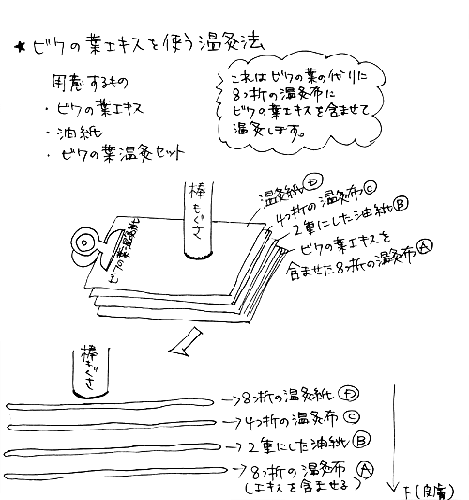 ★ビワの葉エキスを使う温灸法
用意するもの
・ビワの葉エキス
・油紙
・ビワの葉温灸セット
これはビワの葉の代りに
8つ折の温灸布に
ビワの葉エキスを含ませて
温灸します。
棒もぐさ
ビワの葉温灸紙
温灸紙 D
4つ折の温灸布 C
2重にした油紙 B
ビワの葉エキスを
含ませた8つ折の温灸布 A
棒もぐさ
→8つ折の温灸紙 D
→4つ折の温灸布 C
→2重にした油紙 B
→8つ折の温灸布 A
(エキスを含ませる)
下(皮膚)